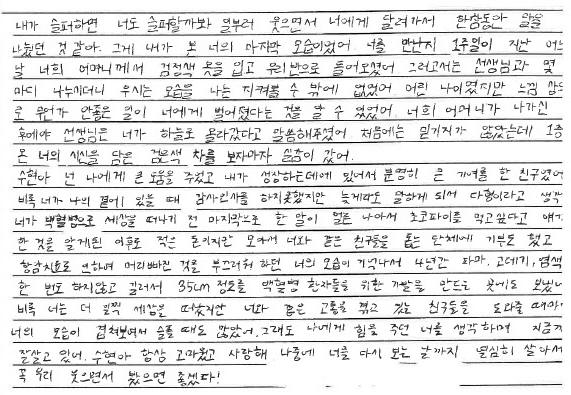 내가 슬퍼하면 너도 슬퍼할까봐 일부러 웃으면서 너에게 달려가서 한참동안 말을
나눴던 것 같아. 그게 내가 본 너의 마지막 모습이었어. 너를 만난지 1주일이 지난 어느
날 너희 어머니께서 검정색 옷을 입고 우리반으로 들어오셨어. 그러고서는 선생님과 몇
마디 나누시더니 우시는 모습을 나는 지켜볼 수 밖에 없었어. 어린 나이였지만 느낌 상으
로 무언가 안좋은 일이 너에게 벌어졌다는 것을 알 수 있었어. 너희 어머니가 나가신
후에야 선생님은 너가 하늘로 올라갔다고 말씀해주셨어. 처음에는 믿기지가 않았는데
온 너의 시신을 담은 검은색 차를 보자마자 실감이 갔어.
수현아 넌 나에게 큰 도움을 주었고 내가 성장하는데에 있어서 분명히 큰 기여를 한 친구였어
비록 너가 나의 곁에 있을 때 감사인사를 하지못했지만 늦게라도 말하게 되서 다행이라고 생각
너가 백혈병으로 세상을 떠나기 전 마지막으로 한 말이 얼른 나아서 초코파이를 먹고싶다고 얘기
한 것을 알게된 이후로 적은 돈이지만 모아서 너와 같은 친구들을 돕는 단체에 기부도 했고
항암치료로 인하여 머리빠진 것을 부끄러워 하던 너의 모습이 기억나서 4년간 파마, 고데기, 염색
한 번도 하지않고 길러서 35cm 정도를 백혈병 환자들을 위한 가발을 만드는 곳에도 보냈어
비록 너는 더 일찍 세상을 떠났지만 너와 같은 고통을 겪고 있는 친구들을 도와줄 때마다
너의 모습이 겹쳐보여서 슬플 때도 많았어. 그래도 나에게 힘을 주던 너를 생각하며 지금까
잘살고 있어. 수현아 항상 고마웠고 사랑해 나중에 너를 다시 보는 날까지 열심히 살아서
꼭 우리 웃으면서 봤으면 좋겠다!